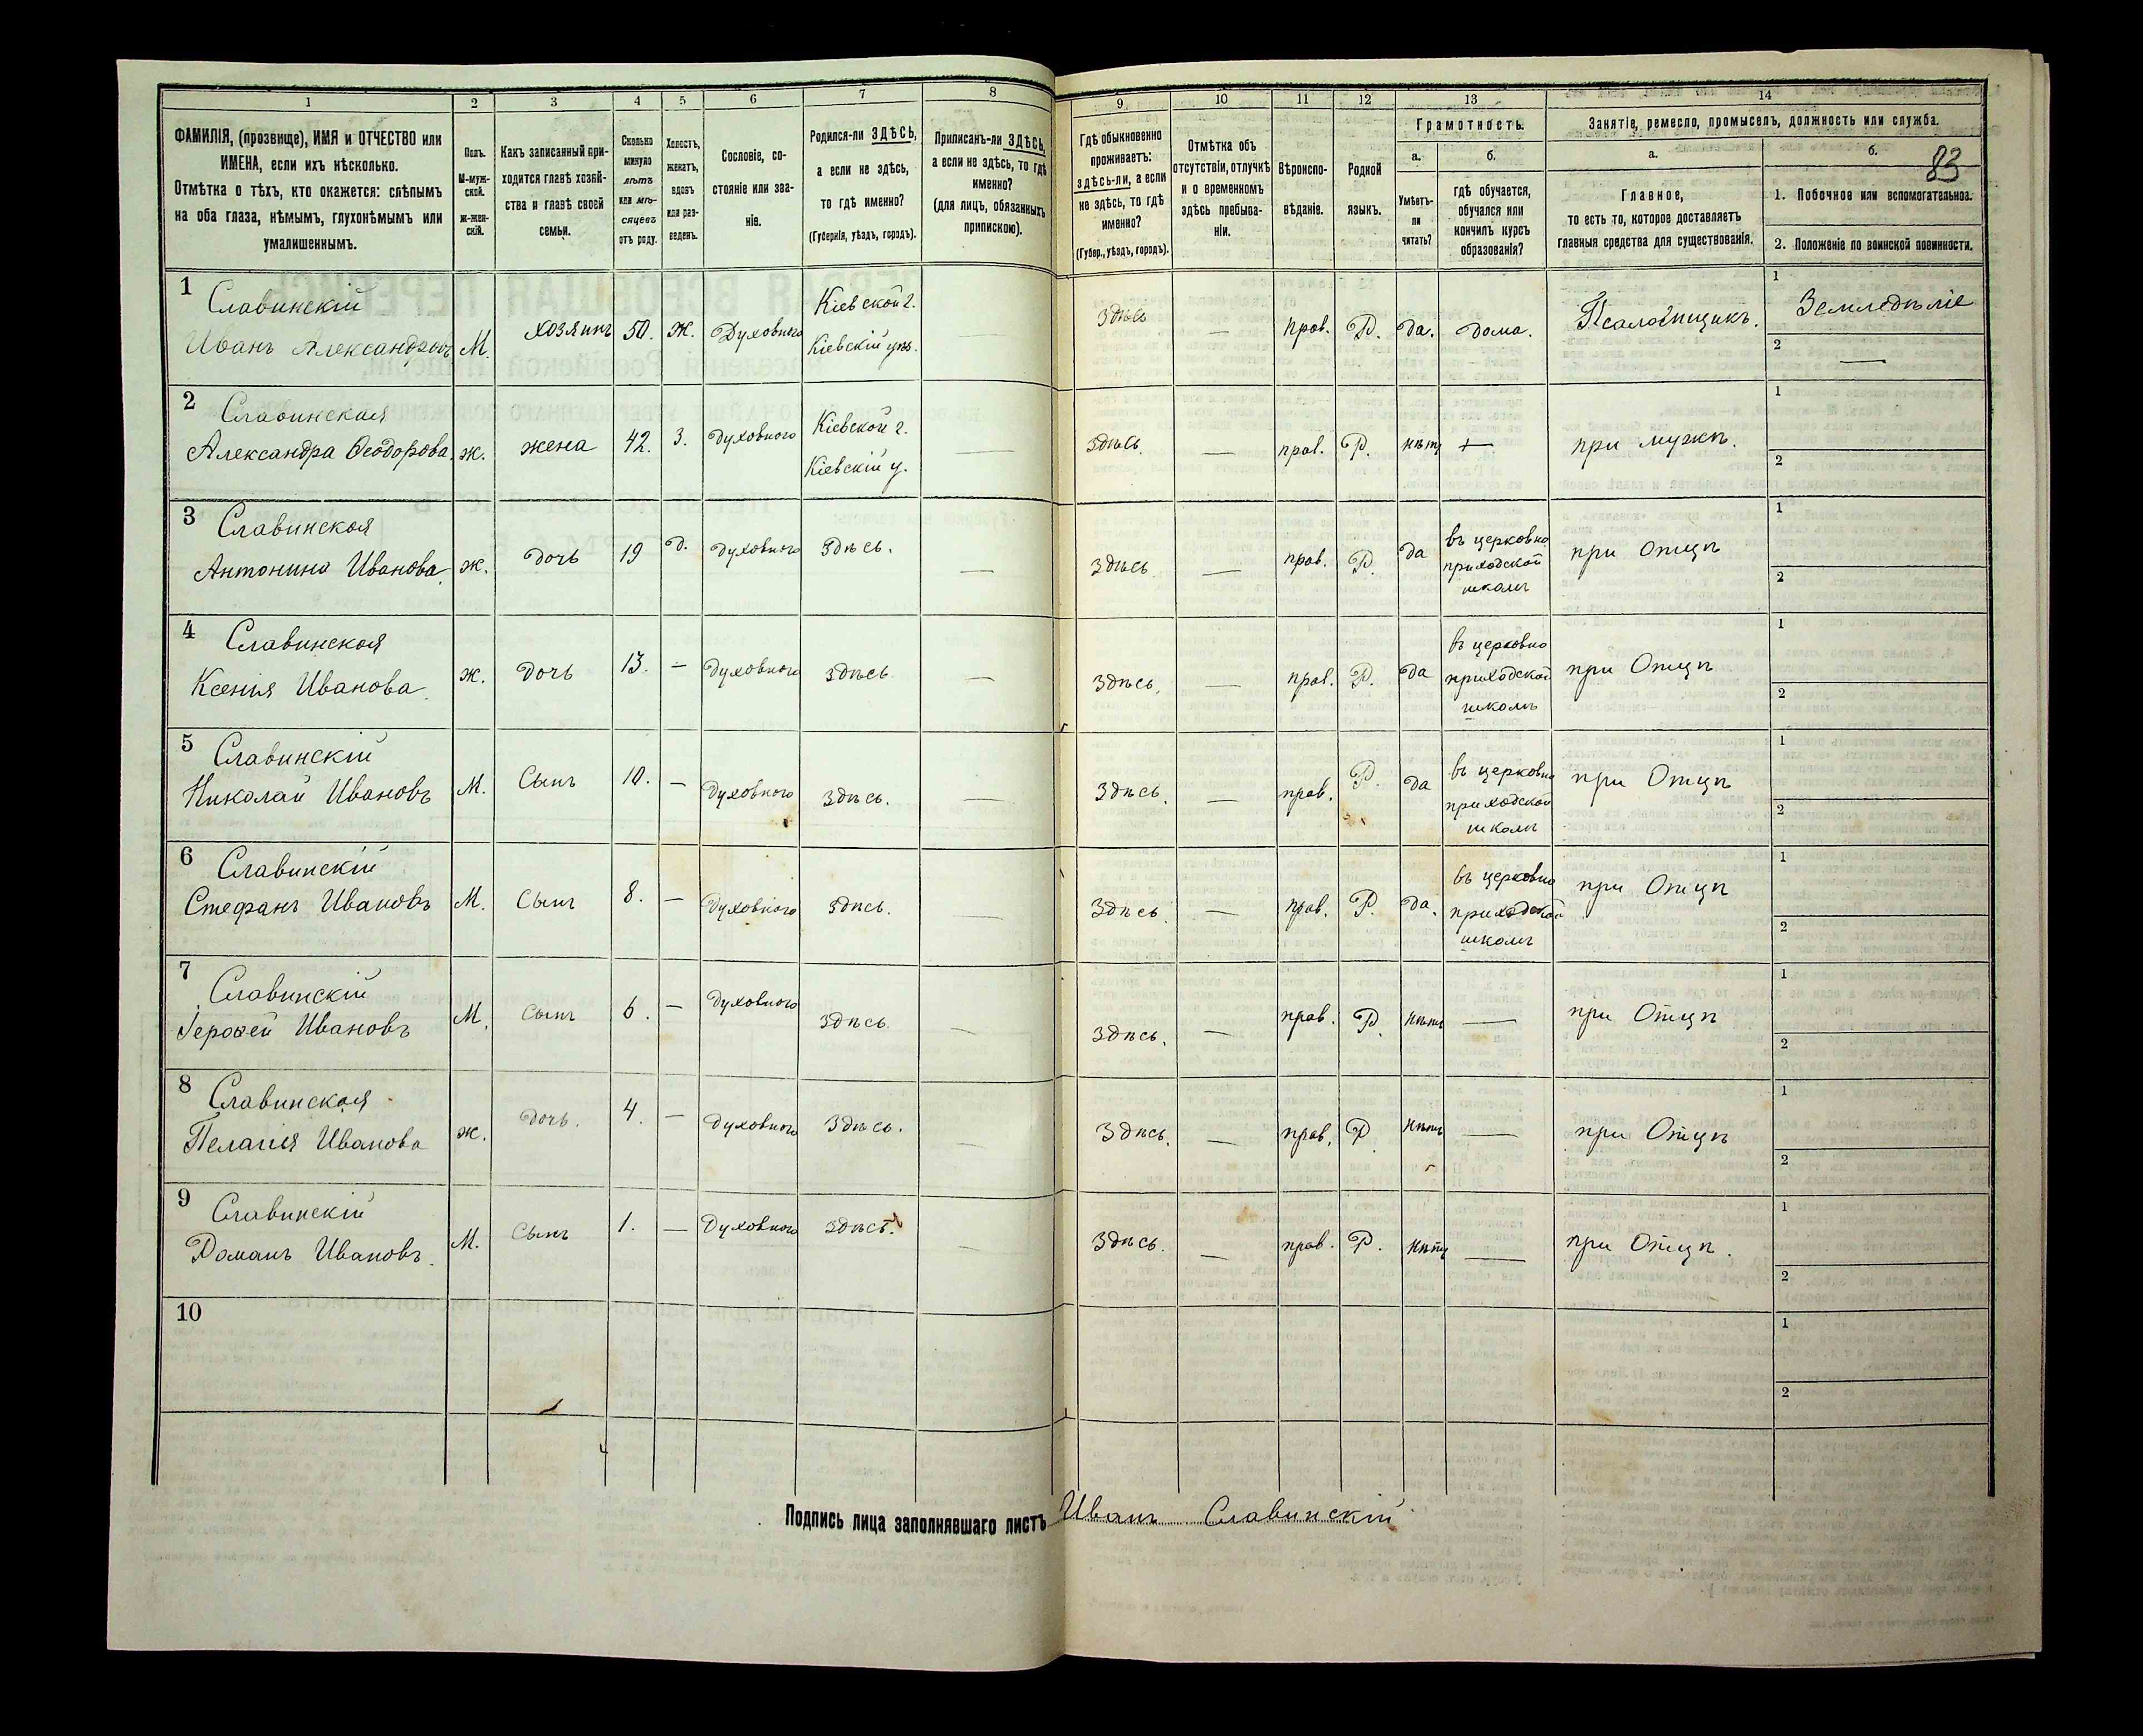 1 2 3 4 5 6 7 8 9 10 11 12 13 14
83
ФАМИЛІЯ, (прозвище), ИМЯ и ОТЧЕСТВО или
ИМЕНА, если ихъ нѣсколько.
Отмѣтка о тѣхъ, кто окажется: слѣпымъ
на оба глаза, нѣмымъ, глухонѣмымъ или
умалишеннымъ.
Полъ.
М-муж-
ской.
ж-жен-
скій.
Какъ записанный при-
ходится главѣ хозяй-
ства и главѣ своей
семьи.
Сколько
минуло
лѣтъ
или мѣ-
сяцевъ
отъ роду.
Холостъ,
женатъ,
вдовъ
или раз-
веденъ.
Сословіе, со-
стояніе или зва-
ніе.
Родился-ли ЗДѢСЬ,
а если не здѣсь,
то гдѣ именно?
(Губернія, уѣздъ, городъ).
Приписанъ-ли ЗДѢСЬ,
а если не здѣсь, то гдѣ
именно?
(для лицъ, обязанныхъ
припискою).
Гдѣ обыкновенно
проживаетъ:
здѣсь-ли, а если
не здѣсь, то гдѣ
именно?
(Губер., уѣздъ, городъ).
Отмѣтка объ
отсутствіи, отлучкѣ
и о временномъ
здѣсь пребыва-
ніи.
Вѣроиспо-
вѣданіе.
Родной
языкъ.
Грамотность.
а.
Умѣетъ-
ли
читать?
б.
гдѣ обучается,
обучался или
кончилъ курсъ
образованія?
Занятіе, ремесло, промыселъ, должность или служба.
а.
Главное,
то есть то, которое доставляетъ
главныя средства для существованія.
б.
1. Побочное или вспомогательное.
2. Положеніе по воинской повинности.
1 Славинскій
Иванъ Александровъ М. хозяинъ 50. Ж. Духовного Кіевской г. Кіевскій уѣз. — здѣсь — прав. Р. да. дома. Псаломщикъ. 1 Земледѣліе 2 —
2 Славинская
Александра Ѳеодорова. ж. жена 42. З. духовного Кіевской г. Кіевскій у. — здѣсь — прав. Р. нѣтъ — при мужѣ. 1 2
3 Славинская
Антонина Иванова ж. дочь 19 Д. духовного Здѣсь. — здѣсь — прав. Р. да въ церковно приходской школѣ при Отцѣ 1 2
4 Славинская
Ксенія Иванова ж. дочь 13. — духовного здѣсь — здѣсь. — прав. Р. да въ церковно приходской школѣ при Отцѣ 1 2
5 Славинскій
Николай Ивановъ М. Сынъ 10. — духовного здѣсь. — здѣсь. — прав. Р. да въ церковно приходской школѣ при Отцѣ 1 2
6 Славинскій
Стефанъ Ивановъ М. Сынъ 8. — духовного здѣсь. — здѣсь — прав. Р. да. въ церковно приходской школѣ при Отцѣ 1 2
7 Славинскій
Ивановъ М. Сынъ 6. — духовного здѣсь — здѣсь. — прав. Р. нѣтъ — при Отцѣ 1 2
8 Славинская
Пелагія Иванова ж. дочь. 4. — духовного здѣсь. — здѣсь. — прав. Р нѣтъ — при Отцѣ 1 2
9 Славинскій
Романъ Ивановъ. М. Сынъ 1. — духовного здѣсь. — здѣсь. — прав. Р. нѣтъ — при Отцѣ. 1 2
10 1 2
Подпись лица заполнявшаго листъ Иванъ Славинскій